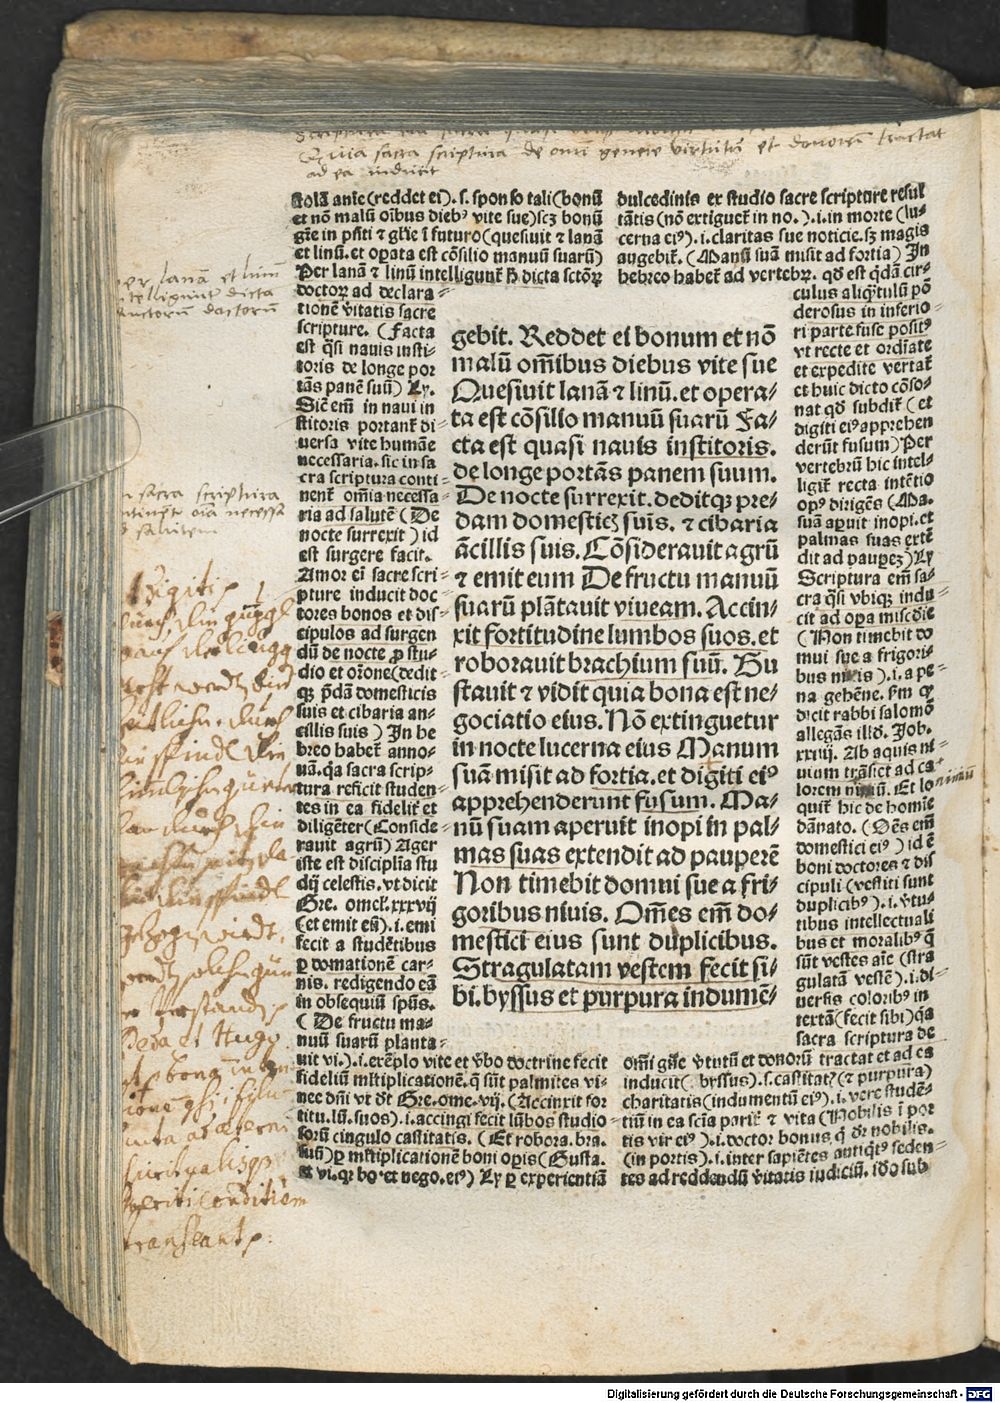 Quia sacra scriptura de omni genere virtutum et donorum tractat
ad ea inducit
tolā ante (reddet ei). s. sponso tali (bonū
et nō malū oībus diebꝰ vite sue) scꝫ bonū
gr̄e in p̄nti ⁊ gl̄ie ī futuro (quesiuit ⁊ lanā
et linū. et oꝑata est cōsilio manuū suarū)
Per lanā ⁊ linū intelligunt᷑ ẜm dicta sctōꝝ
doctoꝝ ad declara⸗
tionē v̄itatis sacre
scripture. (Facta
est q̄si nauis insti⸗
toris de longe por
tās panē suū) Ly.
Sic em̄ in naui in
stitoris portant᷑ di⸗
uersa vite humāe
necessaria. sic in sa
cra scriptura conti⸗
nent᷑ om̄ia necessa⸗
ria ad salutē (De
nocte surrexit) id
est surgere facit.
Amor em̄ sacre scri⸗
pture inducit doc⸗
tores bonos et dis⸗
cipulos ad surgen
dū de nocte ꝓ stu⸗
dio et or̄one (dedit⸗
qꝫ p̄dā domesticis
suis et cibaria an⸗
cillis suis) In he⸗
breo habet᷑ anno⸗
nā. q̄a sacra scrip⸗
tura reficit studen⸗
tes in ea fidelit᷑ et
diligēter (Conside⸗
rauit agrū) Ager
iste est disciplīa stu
dij celestis. vt dicit
Gre. omel. xxxvij
(et emit eū). i. emi
fecit a studētibus
ꝑ domationē car⸗
nis. redigendo eā
in obsequiū spūs.
(De fructu ma⸗
nuū suarū planta⸗
uit vi.). i. exēplo vite et v̄bo doctrine fecit
fideliū ml̄tiplicationē. q̄ sūt palmites vi⸗
nee dn̄i vt dt̄ Gre. ome. vij. (Accinxit for
titu. lū. suos). i. accingi fecit lūbos studio⸗
sorū cingulo castitatis. (Et robora. bra.
suū) ꝑ ml̄tiplicationē boni oꝑis (Gusta.
et vi. qꝛ bo. et nego. eiꝰ) Ly ꝑ experientiā
gebit. Reddet ei bonum et nō
malū om̄ibus diebus vite sue
Quesiuit lanā ⁊ linū. et opera⸗
ta est cōsilio manuū suarū Fa⸗
cta est quasi nauis institoris.
de longe portās panem suum.
De nocte surrexit. deditqꝫ pre⸗
dam domesticꝭ suis. ⁊ cibaria
ācillis suis. Cōsiderauit agrū
⁊ emit eum De fructu manuū
suarū plātauit vineam. Accin⸗
xit fortitudine lumbos suos. et
roborauit brachium suū. Gu
stauit ⁊ vidit quia bona est ne⸗
gociatio eius. Nō extinguetur
in nocte lucerna eius Manum
suā misit ad fortia. et digiti eiꝰ
apprehenderunt fusum. Ma⸗
nū suam aperuit inopi in pal⸗
mas suas extendit ad pauperē
Non timebit domui sue a fri⸗
goribus niuis. Om̄es em̄ do⸗
mestici eius sunt duplicibus.
Stragulatam vestem fecit si⸗
bi. byssus et purpura indumē⸗
dulcedinis ex studio sacre scripture resul
tātis (nō extiguet᷑ in no.). i. in morte (lu⸗
cerna eiꝰ). i. claritas sue noticie. sꝫ magis
augebit᷑. (Manū suā misit ad fortia) In
hebreo habet᷑ ad vertebꝝ. qd̄ est q̄dā cir⸗
culus aliq̄tulū pō
derosus in inferio⸗
ri parte fuse positꝰ
vt recte et ordīate
et expedite vertat᷑
et huic dicto cōso⸗
nat qd̄ subdit᷑ (et
digiti eiꝰ apprehen
derūt fusum) Per
vertebrū hic intel⸗
ligit᷑ recta intētio
opꝰ dirigēs (Ma.
suā aꝑuit inopi. et
palmas suas extē
dit ad pauꝑes) Ly
Scriptura em̄ sa⸗
cra q̄si vbiqꝫ indu⸗
cit ad oꝑa mis̄cdie
(Non timebit do
mui sue a frigori⸗
bus niuis). i. a pe⸗
na gehēne. ẜm qꝫ
dicit rabbi salomō
allegās illd̄. Job.
xxiiij. Ab aquis ni⸗
uium trāsiet ad ca⸗
lorem nimiū. Et lo nimiū
quit᷑ hic de homīe
dānato. (Oēs em̄
domestici eiꝰ) id ē
boni doctores ⁊ dis
cipuli (vestiti sunt
duplicibꝰ). i. v̄tu⸗
tibus intellectuali
bus et moralibꝰ q̄
sūt vestes aīe (stra
gulatā vestē). i. di⸗
uersis coloribꝰ in
textā (fecit sibi) q̄a
sacra scriptura de
om̄i gn̄e v̄tutū et donorū tractat et ad ea
inducit (byssus). s. castitatꝭ (⁊ purpura)
charitatis (indumentū eiꝰ). i. vere studē⸗
tiū in ea scīa parit᷑ ⁊ vita (Nobilis ī por
tis vir eiꝰ). i. doctor bonus. q̄ dr̄ nobilis.
(in portis). i. inter sapiētes antiqꝰs seden⸗
tes ad reddendū v̄itatis iudiciū. idō sub
per lanā et linū
intelligunt dicta
sanctorum doctorum
in sacra scriptura
continent oīa necessa
ad salutem
Beda et Hugo
Digitalisierung gefördert durch die Deutsche Forschungsgemeinschaft - DFG